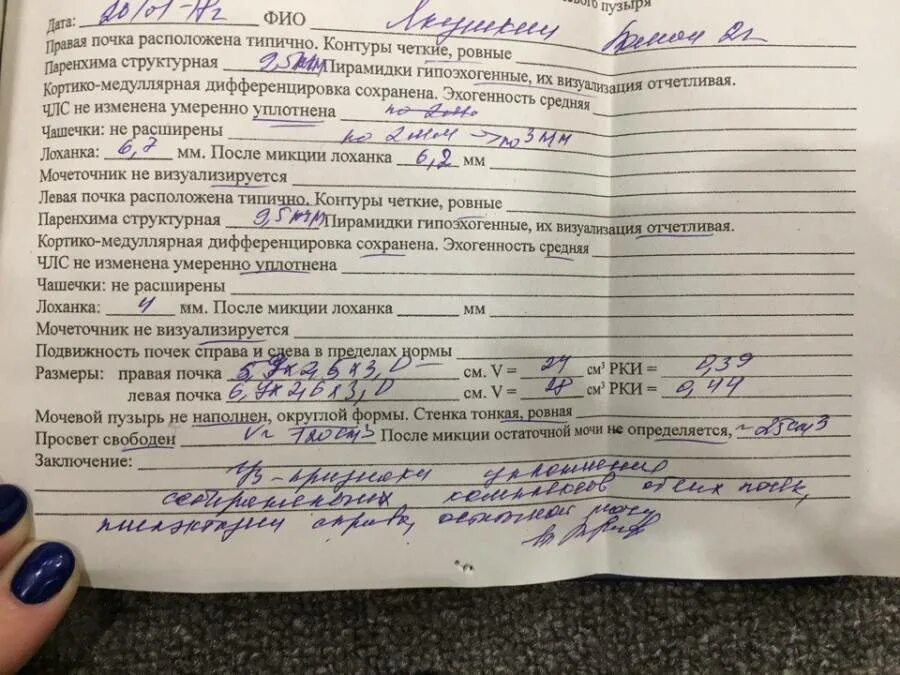 вого пузыря
Дата: 20/01-18г ФИО Якушкин 2г
Правая почка расположена типично. Контуры четкие, ровные
Паренхима структурная 9,5мм Пирамидки гипоэхогенные, их визуализация отчетливая.
Кортико-медуллярная дифференцировка сохранена. Эхогенность средняя
ЧЛС не изменена умеренно уплотнена по 2мм
Чашечки: не расширены по 2мм → по 3мм
Лоханка: 6,7 мм. После микции лоханка 6,2 мм
Мочеточник не визуализируется
Левая почка расположена типично. Контуры четкие, ровные
Паренхима структурная 9,5мм Пирамидки гипоэхогенные, их визуализация отчетливая.
Кортико-медуллярная дифференцировка сохранена. Эхогенность средняя
ЧЛС не изменена умеренно уплотнена
Чашечки: не расширены
Лоханка: 4 мм. После микции лоханка мм
Мочеточник не визуализируется
Подвижность почек справа и слева в пределах нормы
Размеры: правая почка 5,9х2,6х3,0 см. V = 24 см³ РКИ = 0,39
левая почка 6,9х2,6х3,0 см. V = 28 см³ РКИ = 0,44
Мочевой пузырь не наполнен, округлой формы. Стенка тонкая, ровная
Просвет свободен V~ 120см3 После микции остаточной мочи не определяется, ~25см3
Заключение:
УЗ-признаки уплотнения
собирательных комплексов обеих почек,
пиелоэктазии справа, остаточной мочи